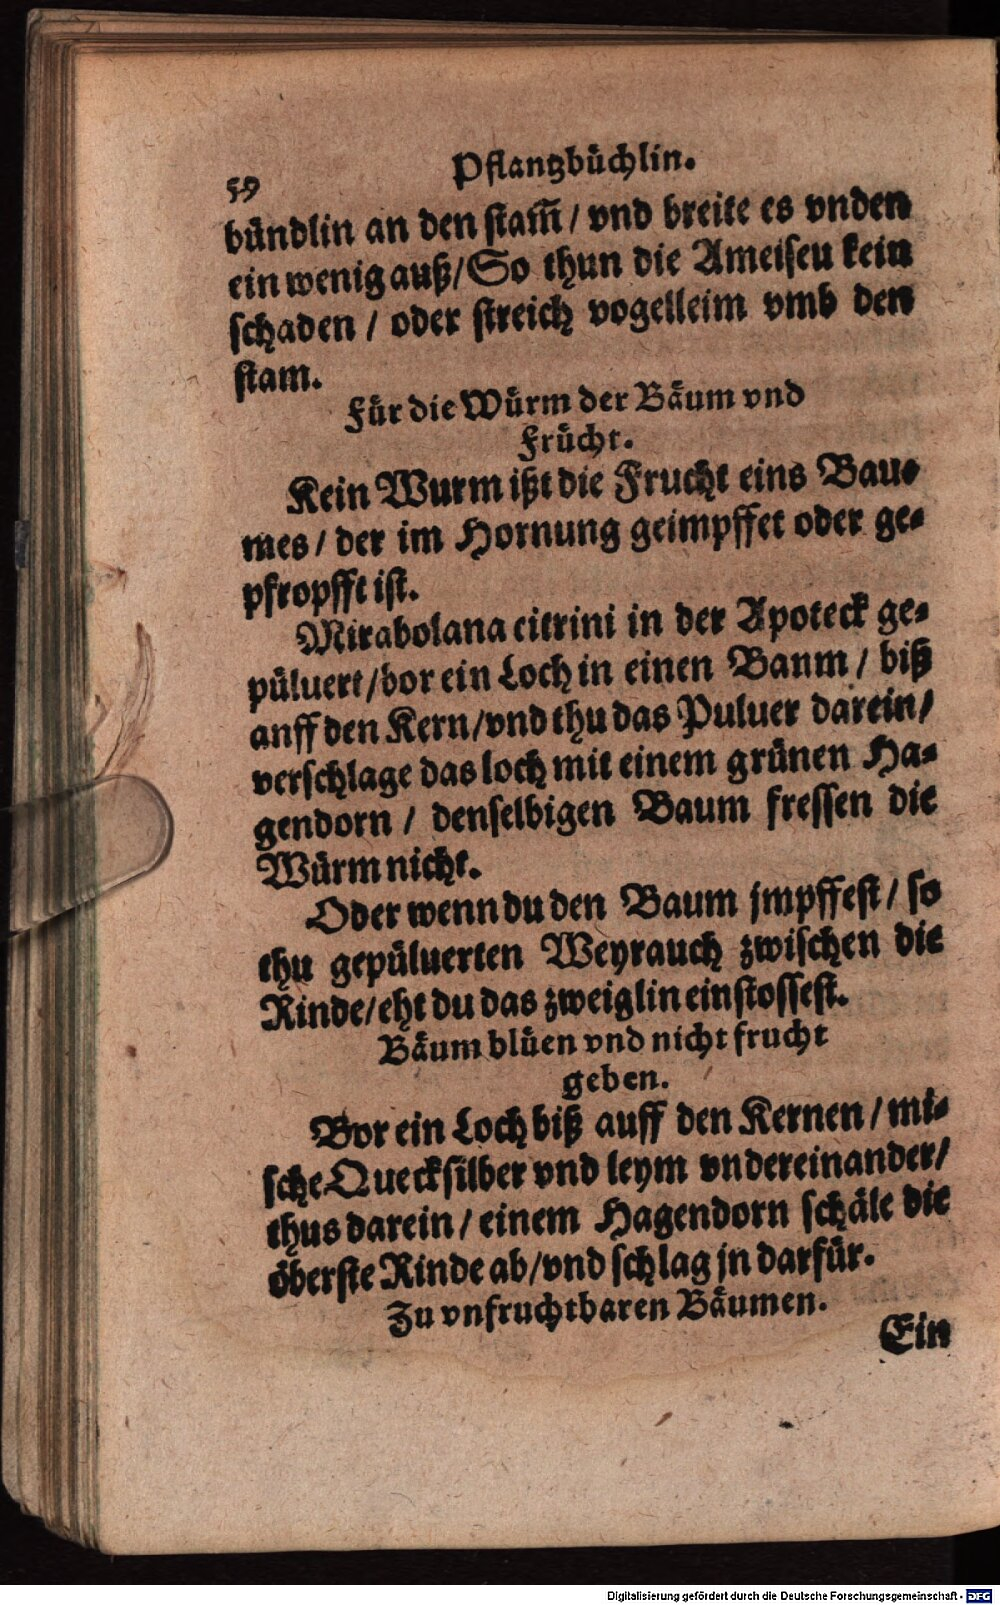 59
Pflantzbüchlin.
bündlin an den stam̃ / vnd breite es vnden
ein wenig auß / So thun die Ameiseu kein
schaden / oder streich vogelleim vmb den
stam.
Für die Würm der Bäum vnd
Frücht.
Kein Wurm ißt die Frucht eins Bau-
mes / der im Hornung geimpffet oder ge-
pfropfft ist.
Mirabolana citrini in der Apoteck ge-
püluert / bor ein Loch in einen Banm / biß
anff den Kern / vnd thu das Puluer darein /
verschlage das loch mit einem grünen Ha-
gendorn / denselbigen Baum fressen die
Würm nicht.
Oder wenn du den Baum jmpffest / so
thu gepüluerten Weyrauch zwischen die
Rinde / eht du das zweiglin einstossest.
Bäum blüen vnd nicht frucht
geben.
Bor ein Loch biß auff den Kernen / mi-
sche Quecksilber vnd leym vndereinander /
thus darein / einem Hagendorn schäle die
öberste Rinde ab / vnd schlag jn darfür.
Zu vnfruchtbaren Bäumen.
Ein
Digitalisierung gefördert durch die Deutsche Forschungsgemeinschaft - DFG